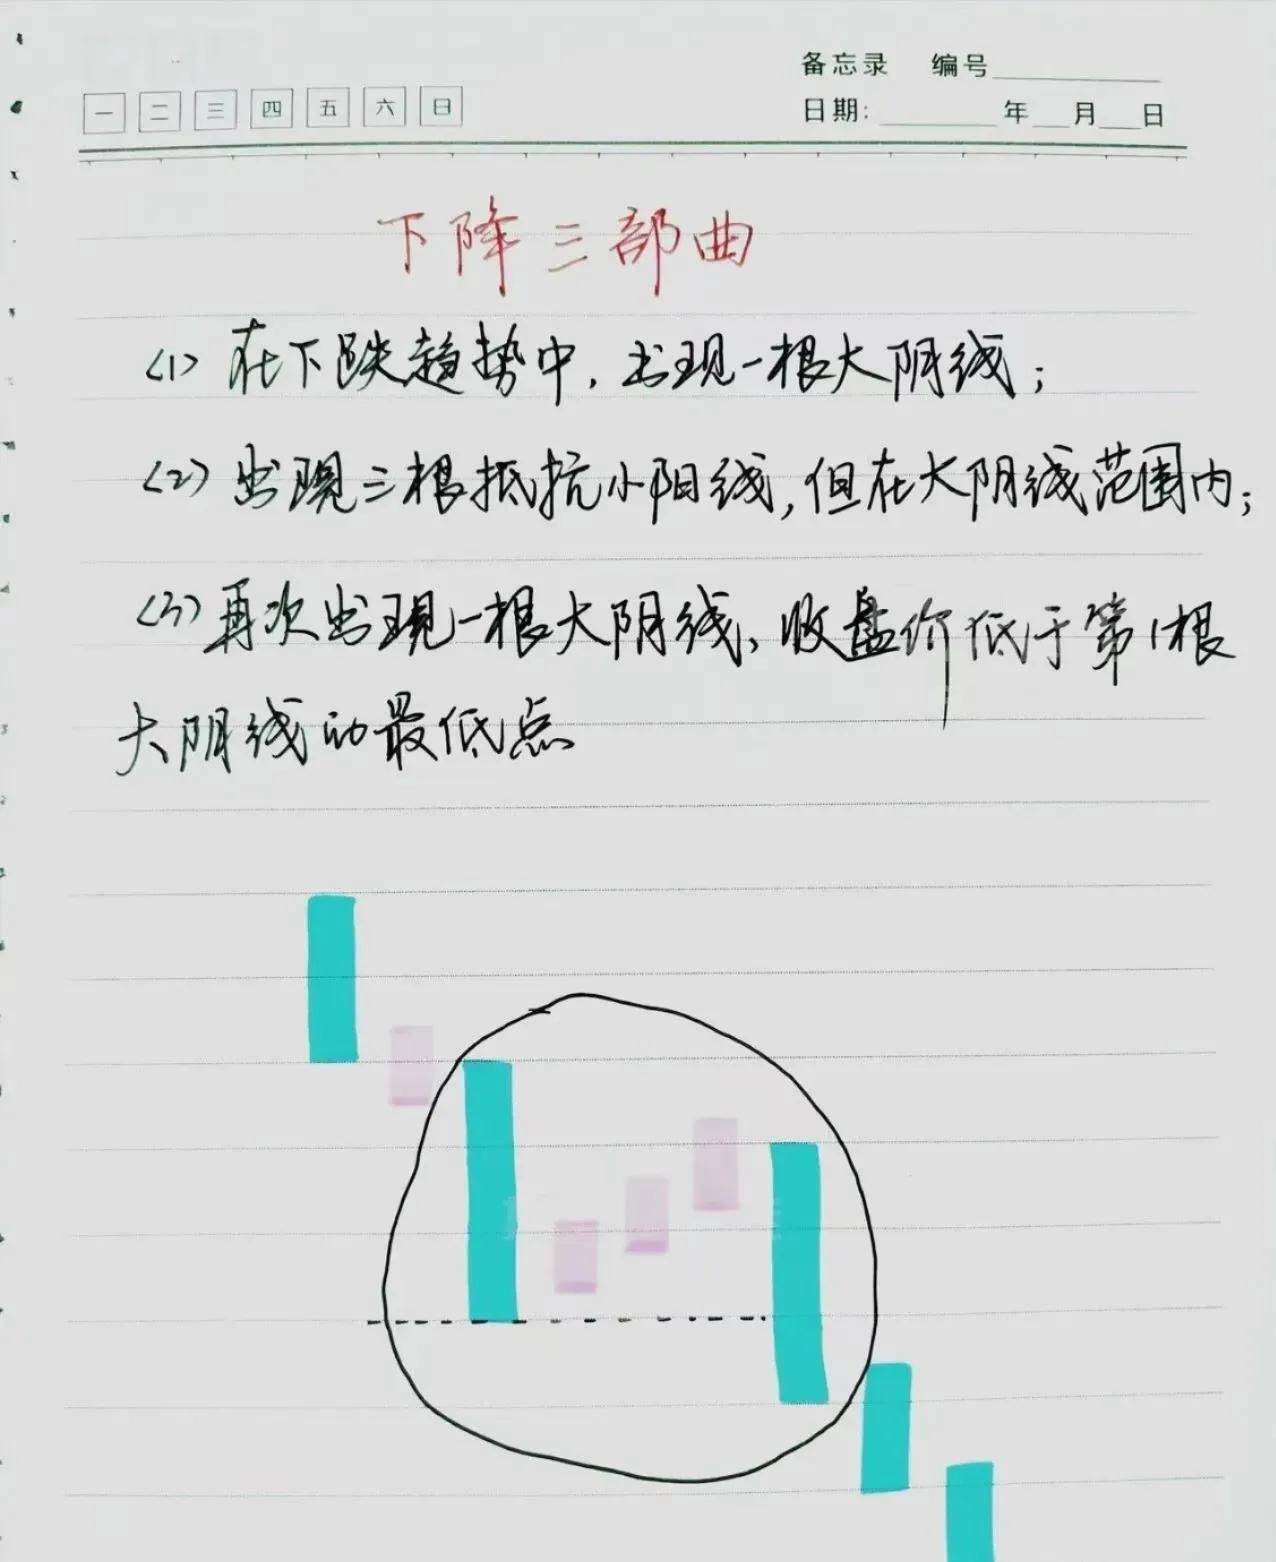 备忘录 编号
一 二 三 四 五 六 日 日期: 年 月 日
下降三部曲
(1) 在下跌趋势中，出现一根大阴线；
(2) 出现三根抵抗小阳线，但在大阴线范围内；
(3) 再次出现一根大阴线，收盘价低于第1根
大阴线的最低点